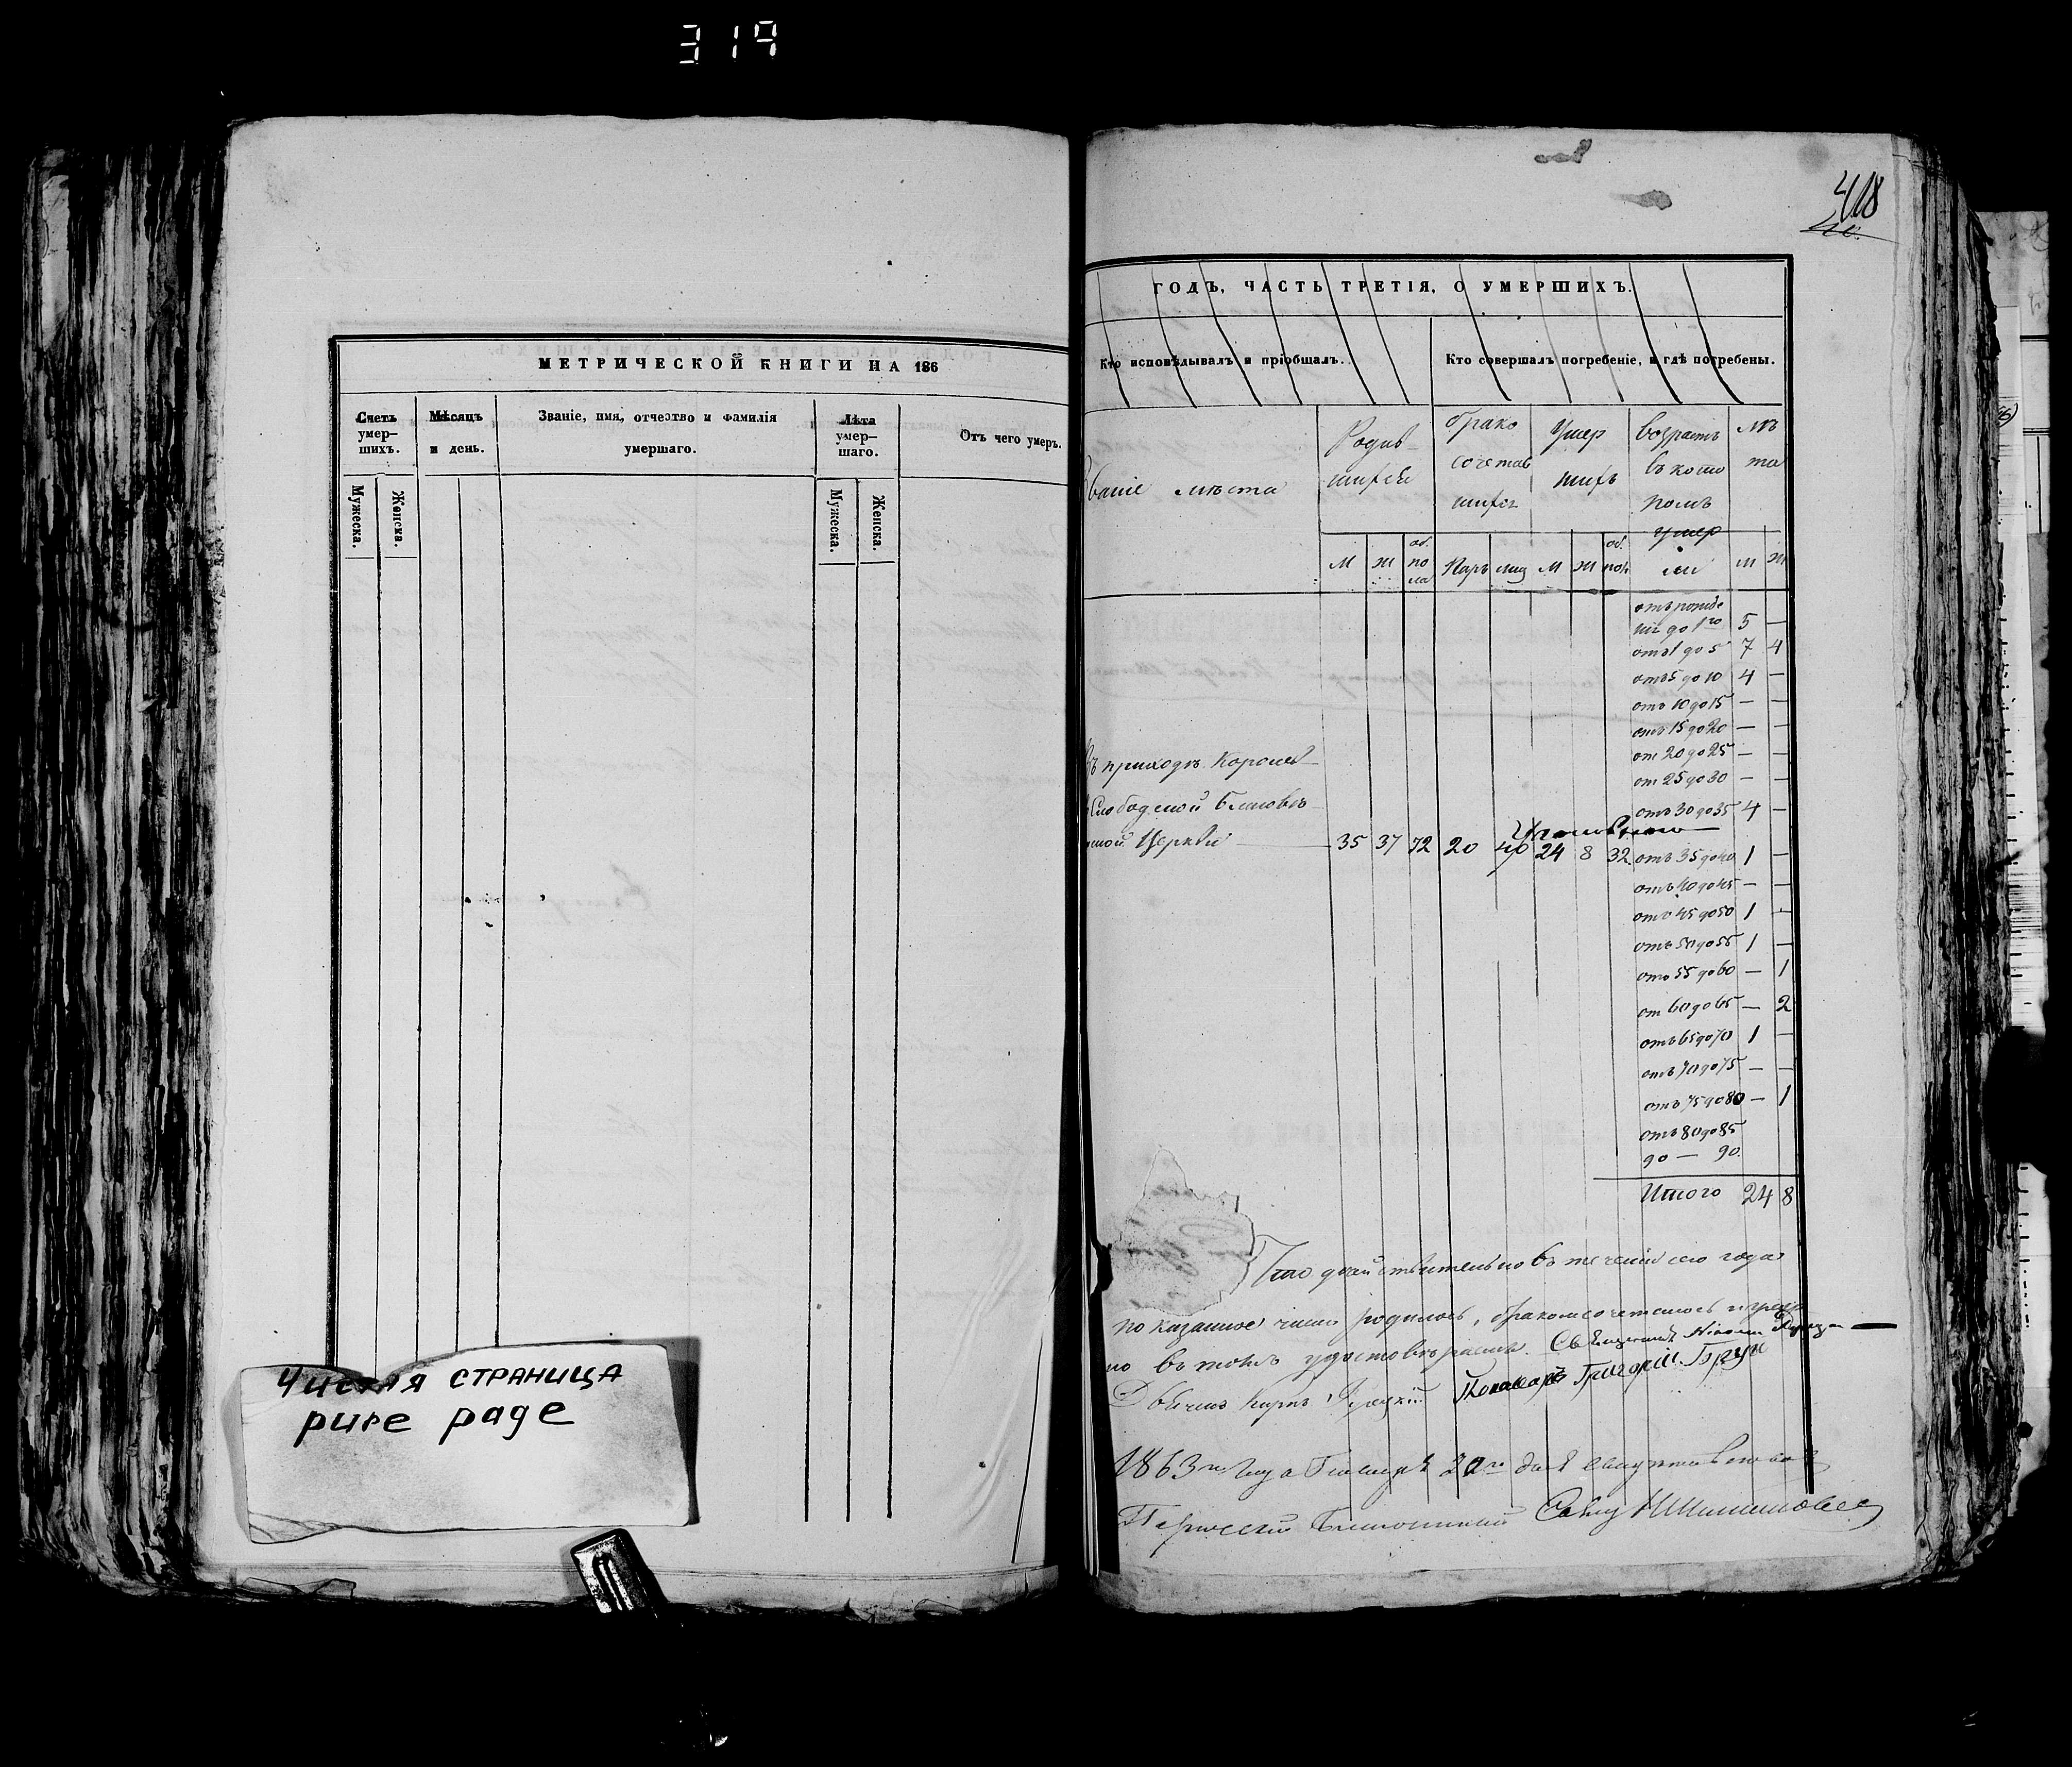 319
МЕТРИЧЕСКОЙ КНИГИ НА 186
Счетъ умер-шихъ.
Мѣсяцъ и день.
Званіе, имя, отчество и фамилія умершаго.
Лѣта умер-шаго.
Отъ чего умеръ.
Мужеска.
Женска.
Мужеска.
Женска.
Чистая страница
pure page
418
ГОДЪ, ЧАСТЬ ТРЕТІЯ, О УМЕРШИХЪ.
Кто исповѣдывалъ и пріобщалъ.
Кто совершалъ погребеніе, и гдѣ погребены.
Званіе мѣста
Родив-шихся
брако сочетав шихся
Умер шихъ
возрастъ въ кото ромъ умер ли
лѣ та
М Ж об. по ла Паръ лиц М Ж об. пол. м ж
отъ рожде
нія до 1го 5 —
отъ 1 до 5 7 4
отъ 5 до 10 4 —
отъ 10 до 15 — —
отъ 15 до 20 — —
от 20 до 25 — —
от 25 до 30 — —
отъ 30 до 35 4 —
Въ приходѣ
Слободской
ской Церкви 35 37 72 20 40 24 8 32 отъ 35 до 40 1 —
отъ 40 до 45 — —
отъ 45 до 50 1 —
отъ 50 до 55 1 —
отъ 55 до 60 — 1
от 60 до 65 — 2
отъ 65 до 70 1 —
отъ 70 до 75 — —
отъ 75 до 80 — 1
отъ 80 до 85
90 — 90.
Итого 24 8
Что дѣйствительно въ теченіи сего года
показанное число родилось, бракомсочеталось и умер
ло въ томъ удостовѣряемъ. Священникъ
Дьячокъ Пономарь Григорій
1863го года 20го дня